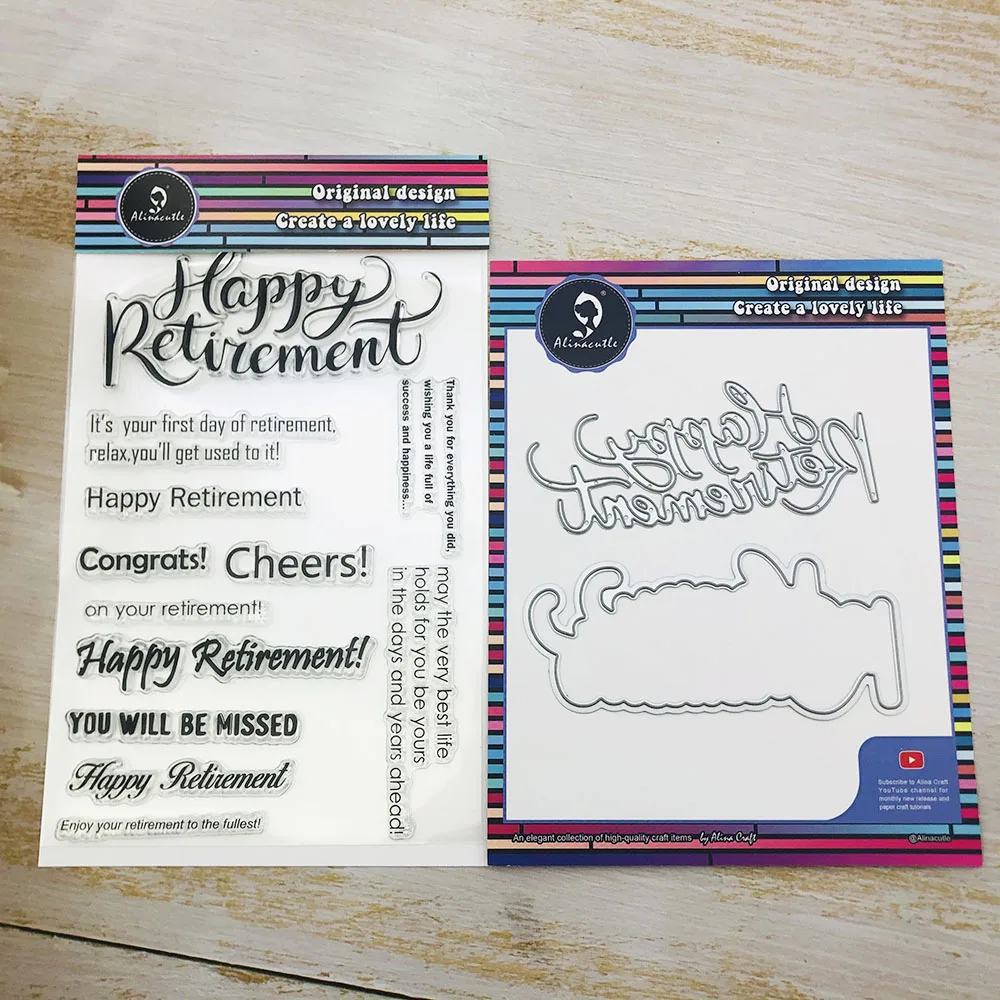 Alinacutle
Original design
Create a lovely life
Happy
Retirement
It's your first day of retirement,
relax,you'll get used to it!
Happy Retirement
Congrats! Cheers!
on your retirement!
Happy Retirement!
YOU WILL BE MISSED
Happy Retirement
Enjoy your retirement to the fullest!
Thank you for everything you did,
wishing you a life full of
success and happiness...
may the very best life
holds for you be yours
in the days and years ahead!
Alinacutle
®
Original design
Create a lovely life
Happy
Retirement
Subscribe to Alina Craft
YouTube channel for
monthly new release and
paper craft tutorials
An elegant collection of high-quality craft items - by Alina Craft
@Alinacutle